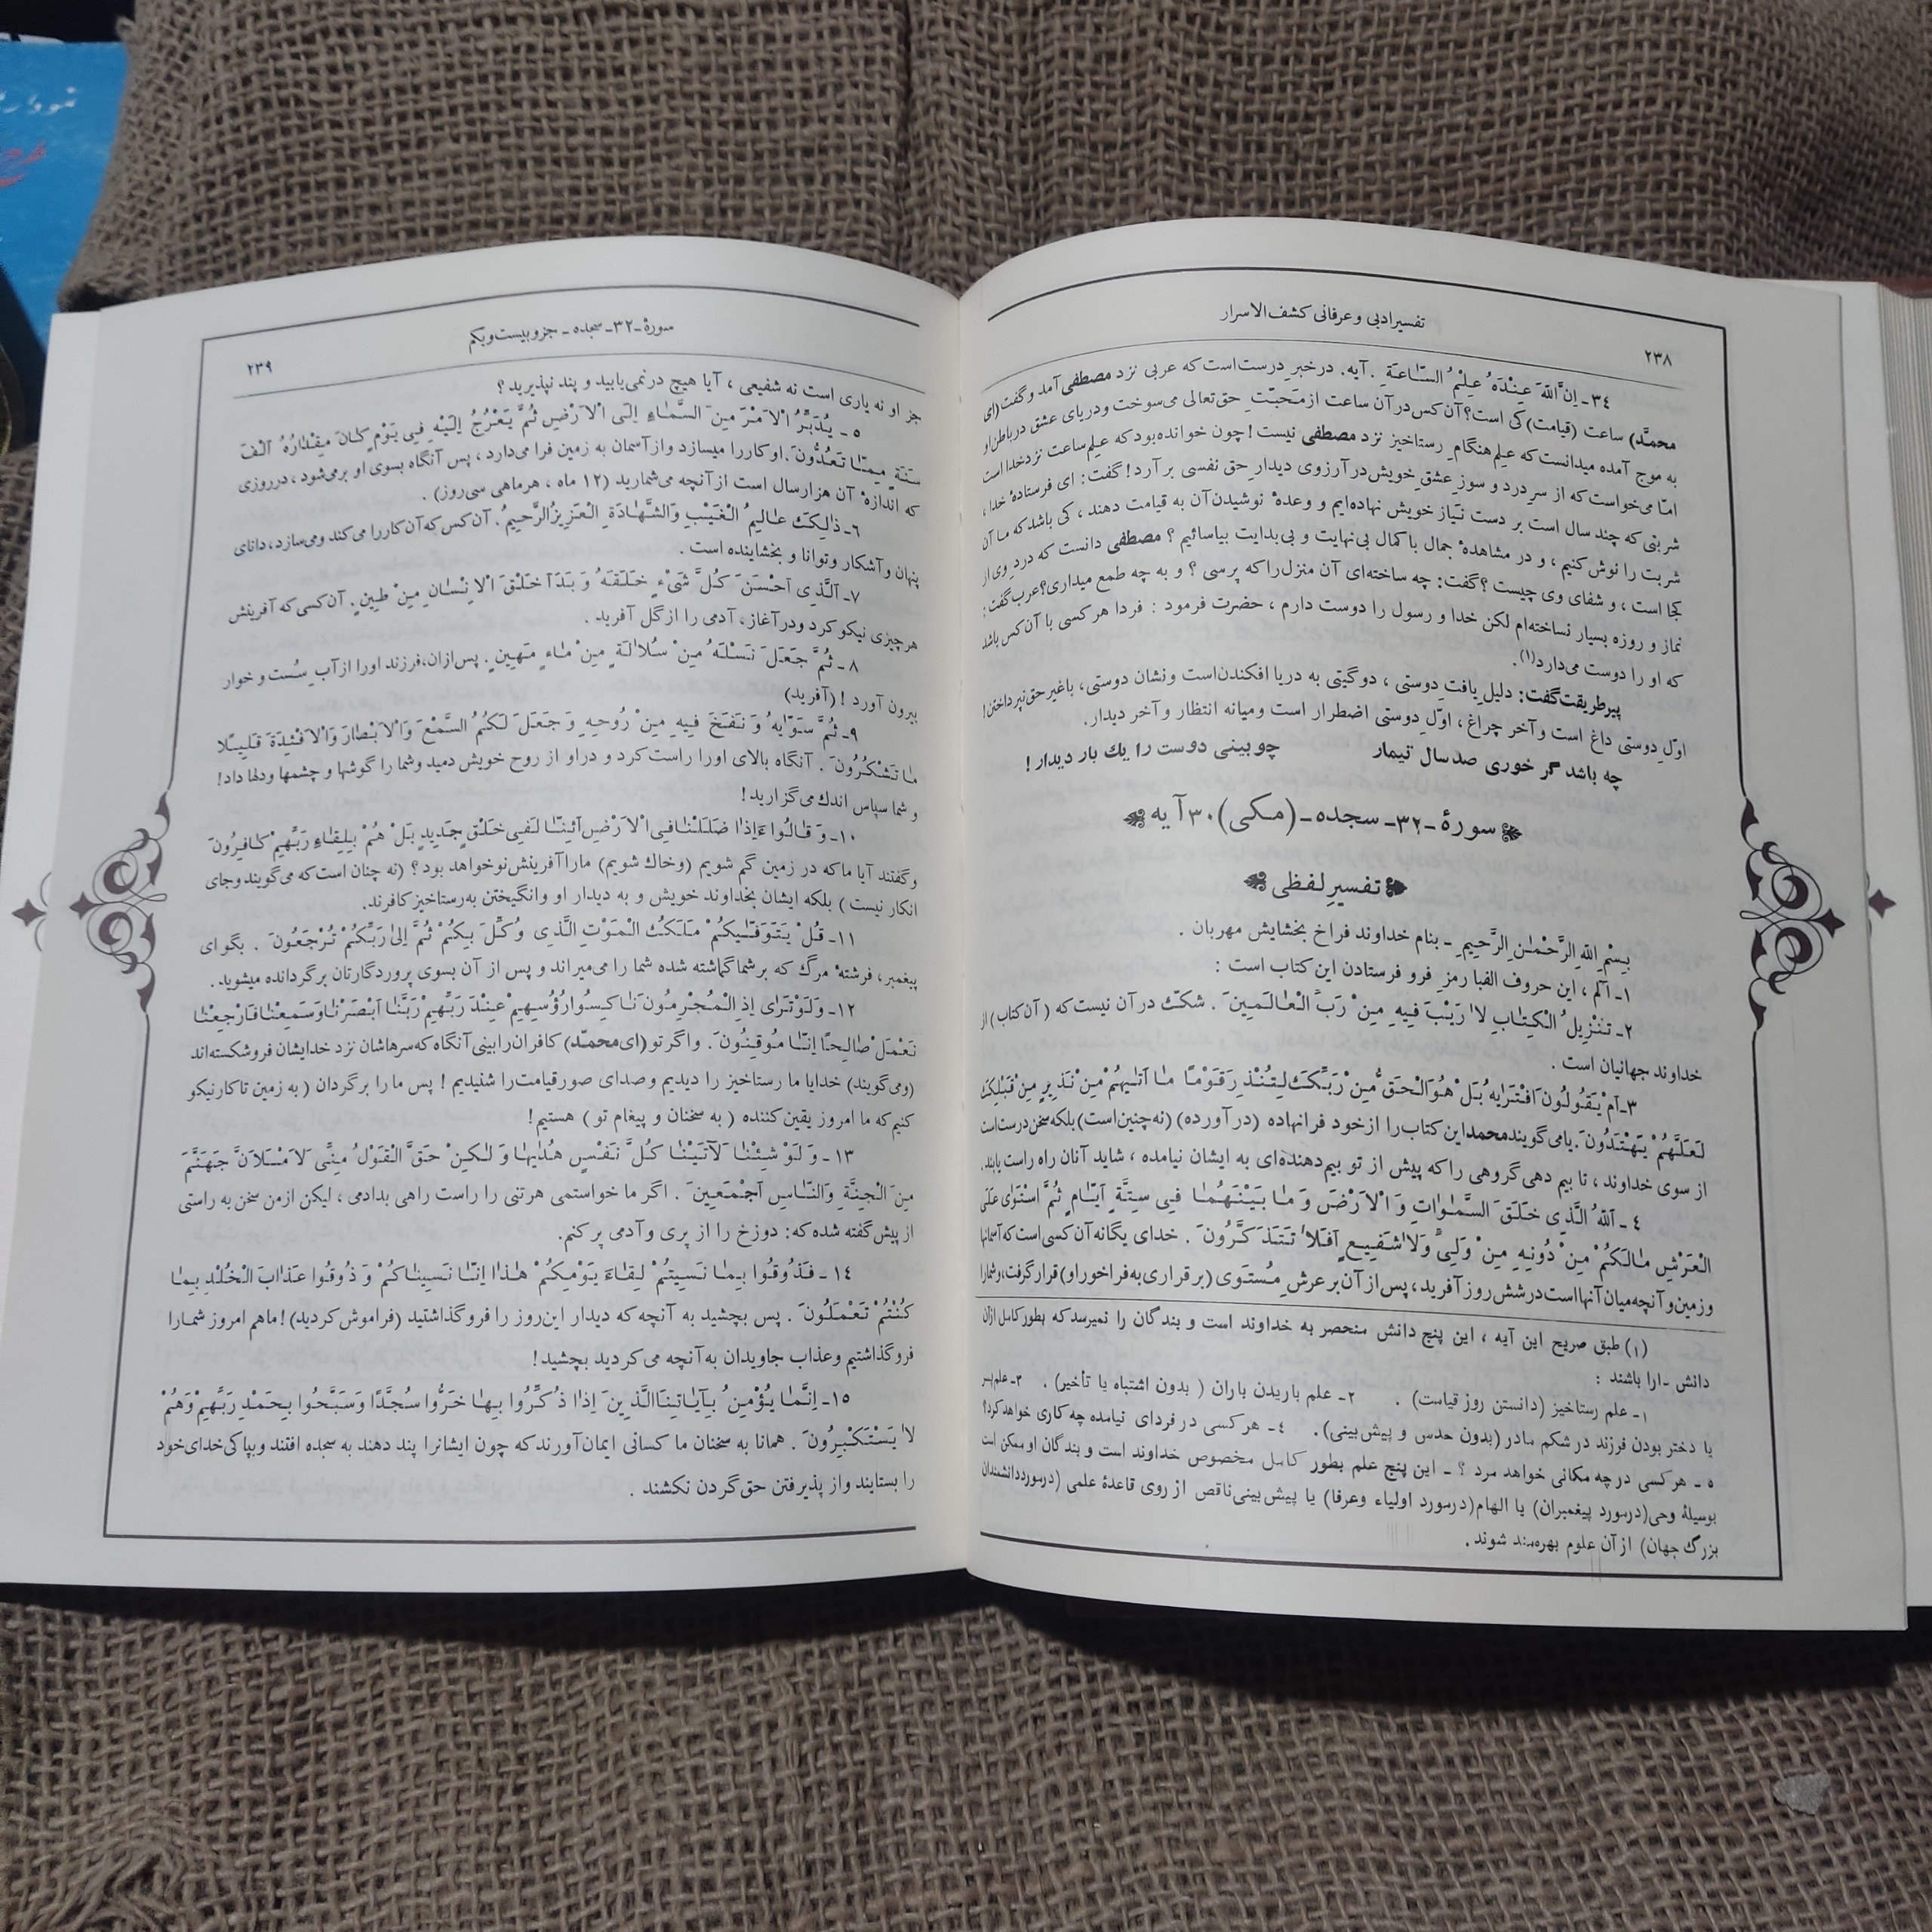 نمودار
تفسیر ادبی و عرفانی کشف الاسرار
۲۳۸
۳٤ـ اِنَّ اللّٰهَ عِنْدَهُ عِلْمُ السّٰاعَةِ . آیه. در خبر درست است که عربی نزد مصطفی آمد و گفت (ای
محمّد) ساعت (قیامت) کی است؟ آن کس در آن ساعت از مَحبّتِ حق تعالی می‌سوخت و دریای عشق در باطن او
به موج آمده میدانست که علم هنگام رستاخیز نزد مصطفی نیست! چون خوانده بود که علم ساعت نزد خدا است
امّا می‌خواست که از سرِ درد و سوزِ عشقِ خویش در آرزوی دیدار حق نفسی بر آرد! گفت: ای فرستادهٔ خدا،
شربتی که چند سال است بر دست نیاز خویش نهاده‌ایم و وعدهٔ نوشیدن آن به قیامت دهند ، کی باشد که ما آن
شربت را نوش کنیم ، و در مشاهدهٔ جمال با کمال بی‌نهایت و بی‌بدایت بیاسائیم ؟ مصطفی دانست که دردِ وی از
کجا است ، و شفای وی چیست ؟ گفت: چه ساخته‌ای آن منزل را که پرسی ؟ و به چه طمع میداری؟ عرب گفت:
نماز و روزه بسیار نساخته‌ام لکن خدا و رسول را دوست دارم ، حضرت فرمود : فردا هر کسی با آن کس باشد
که او را دوست می‌دارد(۱).
پیر طریقت گفت: دلیلِ یافتِ دوستی ، دو گیتی به دریا افکندن است و نشان دوستی، با غیر حق نپرداختن!
اوّلِ دوستی داغ است و آخر چراغ، اوّلِ دوستی اضطرار است و میانه انتظار و آخر دیدار.
چه باشد گر خوری صد سال تیمار چو بینی دوست را یك بار دیدار!
سورهٔ -۳۲- سجده - (مکی) ۳۰ آیه
تفسیرِ لفظی
بِسْمِ اللّٰهِ الرَّحْمٰنِ الرَّحیمِ ـ بنام خداوند فراخ بخشایش مهربان .
۱ـ اآلم ، این حروف الفبا رمزِ فرو فرستادن این کتاب است :
۲ـ تَنْزیلُ الْکِتٰابِ لاٰ رَیْبَ فیهِ مِنْ رَبِّ الْعٰالَمینَ . شکّ در آن نیست که ( آن کتاب ) از
خداوند جهانیان است .
۳ـ اَمْ یَقُولُونَ افْتَرٰیهُ بَلْ هُوَ الْحَقُّ مِنْ رَبِّکَ لِتُنْذِرَ قَوْمًا مٰا اَتٰیهُمْ مِنْ نَذیرٍ مِنْ قَبْلِکَ
لَعَلَّهُمْ یَهْتَدُونَ . یا می گویند محمد این کتاب را از خود فرانهاده (در آورده) (نه چنین است) بلکه سخن درست است
از سوی خداوند ، تا بیم دهی گروهی را که پیش از تو بیم دهنده‌ای به ایشان نیامده ، شاید آنان راه راست یابند.
٤ـ اَللّٰهُ الَّذی خَلَقَ السَّمٰوٰاتِ وَ الْاَرْضَ وَ مٰا بَیْنَهُمٰا فی سِتَّةِ اَیّٰامٍ ثُمَّ اسْتَوٰی عَلَی
الْعَرْشِ مٰا لَکُمْ مِنْ دُونِهِ مِنْ وَلِیٍّ وَ لاٰ شَفیعٍ اَفَلاٰ تَتَذَکَّرُونَ . خدای یگانه آن کسی است که آسمانها
و زمین و آنچه میان آنها است در شش روز آفرید، پس از آن بر عرش مُستوی (بر قراری به فراخور او) قرار گرفت، و شما را
(۱) طبق صریح این آیه ، این پنج دانش منحصر به خداوند است و بندگان را نمیرسد که بطور کامل از آن
دانش دارا باشند :
۱ـ علم رستاخیز (دانستن روز قیامت) . ۲ـ علم باریدن باران ( بدون اشتباه یا تأخیر) . ۳ـ علم پسر
یا دختر بودن فرزند در شکم مادر (بدون حدس و پیش‌بینی). ٤ـ هر کسی در فردای نیامده چه کاری خواهد کرد؟
۵ ـ هر کسی در چه مکانی خواهد مرد ؟ ـ این پنج علم بطور کامل مخصوص خداوند است و بندگان او ممکن است
بوسیلهٔ وحی (در مورد پیغمبران) یا الهام (در مورد اولیاء و عرفا) یا پیش‌بینی ناقص از روی قاعدهٔ علمی (در مورد دانشمندان
بزرگ جهان) از آن علوم بهره‌مند شوند .
سورهٔ -۳۲- سجده - جزو بیست و یکم
۲۳۹
جز او نه یاری است نه شفیعی ، آیا هیچ در نمی‌یابید و پند نپذیرید ؟
۵ ـ یُدَبِّرُ الْاَمْرَ مِنَ السَّمٰاءِ اِلَی الْاَرْضِ ثُمَّ یَعْرُجُ اِلَیْهِ فی یَوْمٍ کٰانَ مِقْدٰارُهُ اَلْفَ
سَنَةٍ مِمّٰا تَعُدُّونَ . او کار را میسازد و از آسمان به زمین فرا می‌دارد ، پس آنگاه بسوی او بر می‌شود ، در روزی
که اندازهٔ آن هزار سال است از آنچه می‌شمارید (۱۲ ماه ، هر ماهی سی روز) .
٦ـ ذٰلِکَ عٰالِمُ الْغَیْبِ وَ الشَّهٰادَةِ الْعَزیزُ الرَّحیمُ . آن کس که آن کار را می کند و می‌سازد، دانای
پنهان و آشکار و توانا و بخشاینده است .
۷ـ اَلَّذی اَحْسَنَ کُلَّ شَیْءٍ خَلَقَهُ وَ بَدَاَ خَلْقَ الْاِنْسٰانِ مِنْ طینٍ . آن کسی که آفرینش
هر چیزی نیکو کرد و در آغاز، آدمی را از گل آفرید .
۸ـ ثُمَّ جَعَلَ نَسْلَهُ مِنْ سُلاٰلَةٍ مِنْ مٰاءٍ مَهینٍ . پس از ان، فرزند او را از آب سُست و خوار
بیرون آورد ! (آفرید)
۹ـ ثُمَّ سَوّٰیهُ وَ نَفَخَ فیهِ مِنْ رُوحِهِ وَ جَعَلَ لَکُمُ السَّمْعَ وَ الْاَبْصٰارَ وَ الْاَفْئِدَةَ قَلیلًا
مٰا تَشْکُرُونَ . آنگاه بالای او را راست کرد و در او از روح خویش دمید و شما را گوشها و چشمها و دلها داد!
و شما سپاس اندك می‌گزارید!
۱۰ـ وَ قٰالُوا ءَاِذٰا ضَلَلْنٰا فِی الْاَرْضِ اَئِنّٰا لَفی خَلْقٍ جَدیدٍ بَلْ هُمْ بِلِقٰاءِ رَبِّهِمْ کٰافِرُونَ
و گفتند آیا ما که در زمین گم شویم (و خاك شویم) ما را آفرینش نو خواهد بود ؟ (نه چنان است که می گویند و جای
انکار نیست ) بلکه ایشان بخداوند خویش و به دیدار او و انگیختن به رستاخیز کافرند.
۱۱ـ قُلْ یَتَوَفّٰیکُمْ مَلَکُ الْمَوْتِ الَّذی وُکِّلَ بِکُمْ ثُمَّ اِلیٰ رَبِّکُمْ تُرْجَعُونَ . بگو ای
پیغمبر، فرشتهٔ مرگ که بر شما گماشته شده شما را می‌میراند و پس از آن بسوی پروردگارتان برگردانده میشوید.
۱۲ـ وَ لَوْ تَرٰی اِذِ الْمُجْرِمُونَ نٰاکِسُوا رُؤُسِهِمْ عِنْدَ رَبِّهِمْ رَبَّنٰا اَبْصَرْنٰا وَ سَمِعْنٰا فَارْجِعْنٰا
نَعْمَلْ صٰالِحًا اِنّٰا مُوقِنُونَ . و اگر تو (ای محمّد) کافران را بینی آنگاه که سرهاشان نزد خدایشان فروشکسته‌اند
(و می گویند) خدایا ما رستاخیز را دیدیم و صدای صور قیامت را شنیدیم ! پس ما را برگردان ( به زمین تا کار نیکو
کنیم که ما امروز یقین کننده ( به سخنان و پیغام تو ) هستیم!
۱۳ـ وَ لَوْ شِئْنٰا لَآتَیْنٰا کُلَّ نَفْسٍ هُدٰیهٰا وَ لٰکِنْ حَقَّ الْقَوْلُ مِنّی لَاَمْلَاَنَّ جَهَنَّمَ
مِنَ الْجِنَّةِ وَ النّٰاسِ اَجْمَعینَ . اگر ما خواستمی هر تنی را راست راهی بدادمی ، لیکن از من سخن به راستی
از پیش گفته شده که: دوزخ را از پری و آدمی پر کنم.
۱٤ـ فَذُوقُوا بِمٰا نَسیتُمْ لِقٰاءَ یَوْمِکُمْ هٰذٰا اِنّٰا نَسینٰاکُمْ وَ ذُوقُوا عَذٰابَ الْخُلْدِ بِمٰا
کُنْتُمْ تَعْمَلُونَ . پس بچشید به آنچه که دیدار این روز را فروگذاشتید (فراموش کردید)! ما هم امروز شما را
فروگذاشتیم و عذاب جاویدان به آنچه می کردید بچشید!
۱۵ـ اِنَّمٰا یُؤْمِنُ بِآیٰاتِنَا الَّذینَ اِذٰا ذُکِّرُوا بِهٰا خَرُّوا سُجَّدًا وَ سَبَّحُوا بِحَمْدِ رَبِّهِمْ وَ هُمْ
لاٰ یَسْتَکْبِرُونَ . همانا به سخنان ما کسانی ایمان آورند که چون ایشانرا پند دهند به سجده افتند و بپاکی خدای خود
را بستایند و از پذیرفتن حق گردن نکشند .